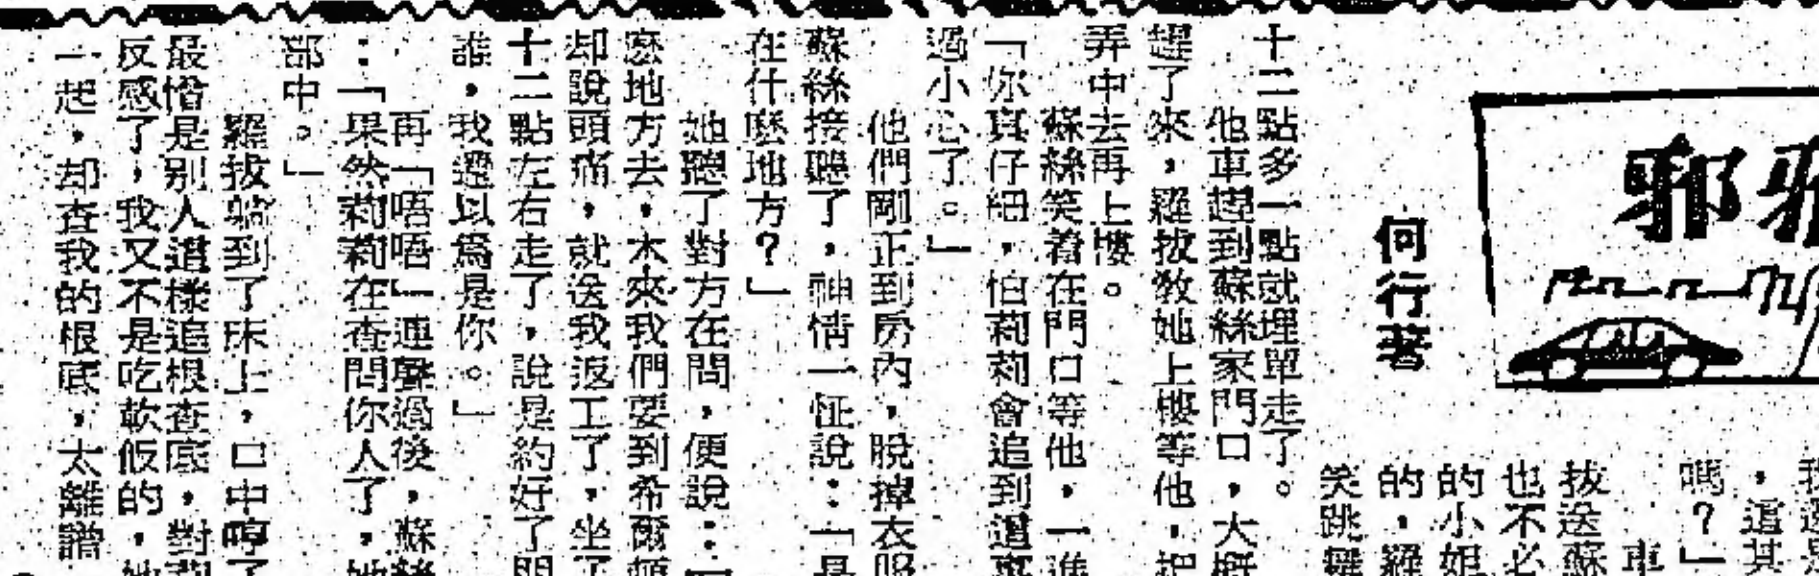 邪
何行著
嗎？」
拔送蘇
也不必
的小姐
的，羅
笑跳舞
十二點多一點就埋單走了。
他車趕到蘇絲家門口，大概
趕了來，羅拔教她上樓等他，把
弄中去再上樓。
蘇絲笑着在門口等他，一進
「你真仔細，怕莉莉會追到這裏
過小心了。」
他們剛正到房內，脫掉衣服
蘇絲接聽了，神情一怔說：「是
在什麼地方？」
她聽了對方在問，便說：「
麼地方去，本來我們要到希爾頓
却說頭痛，就送我返工了，坐了
十二點左右走了，說是約好了朋
誰，我還以爲是你。」
再「唔唔」連聲過後，蘇絲
：「果然莉莉在查問你人了，她
部中。」
羅拔躺到了床上，口中哼了
最憎是別人這樣追根查底，對莉
反感了，我又不是吃軟飯的，她
一起，却查我的根底，太離譜